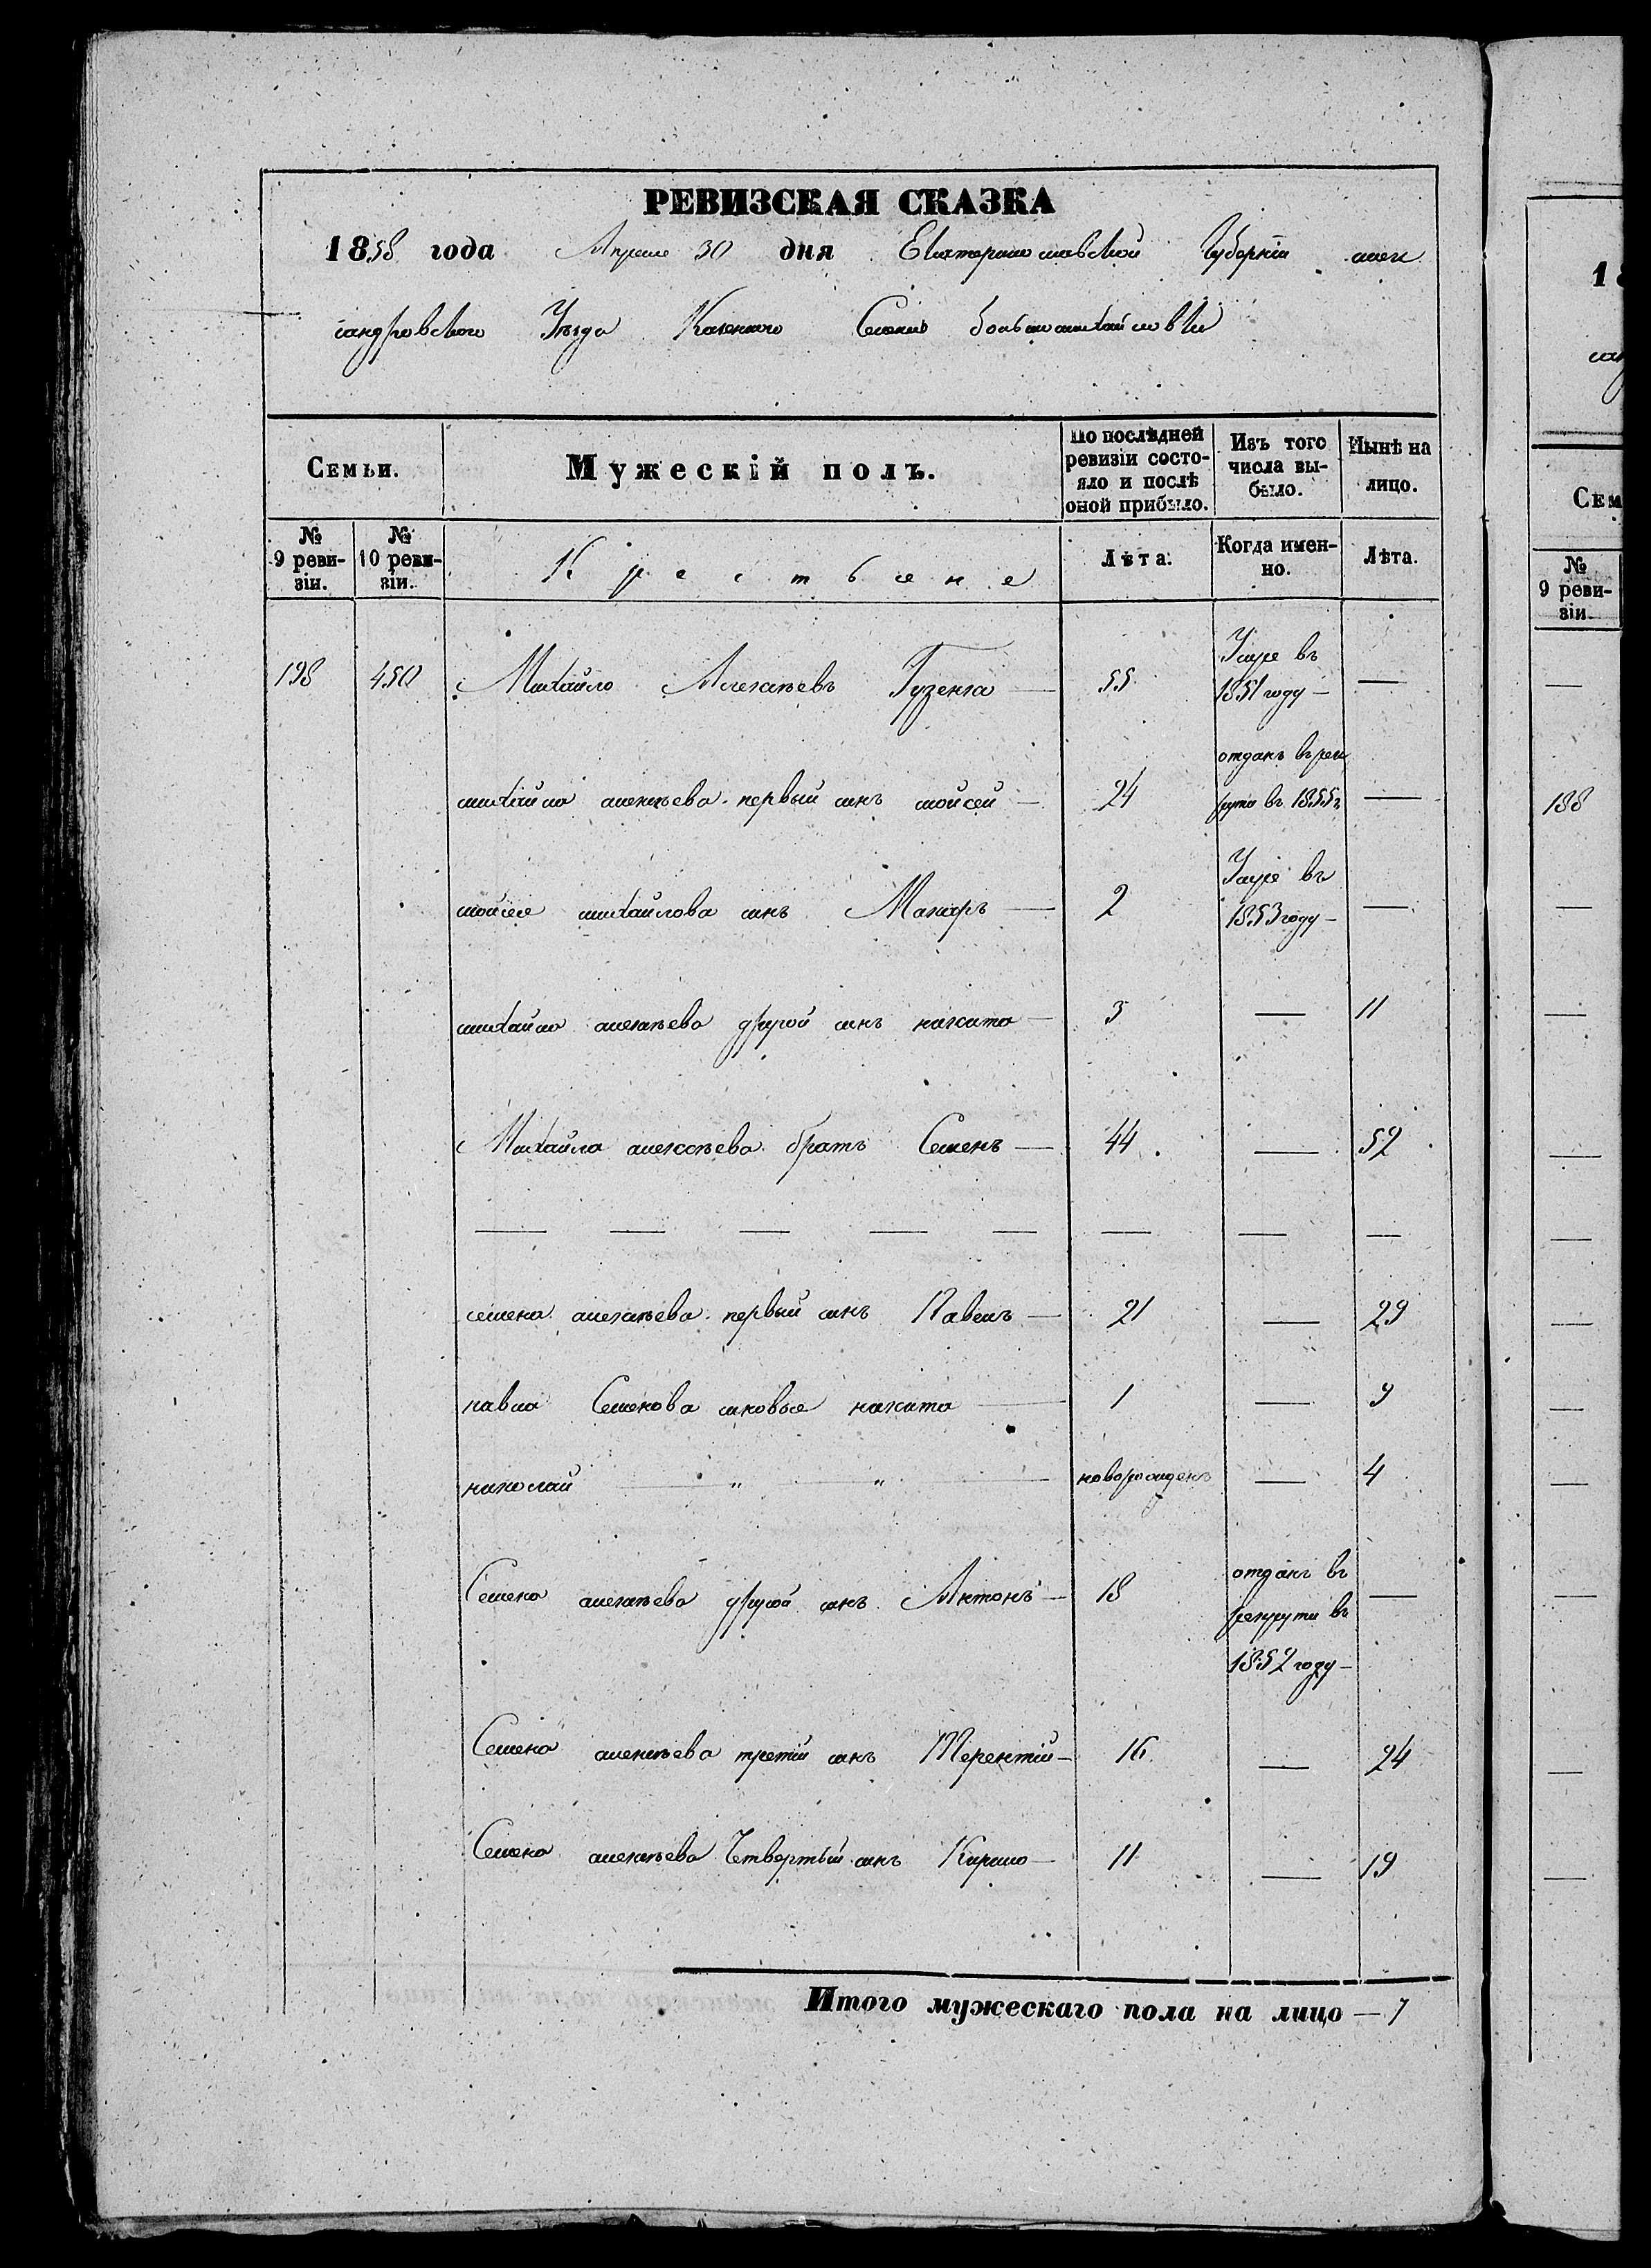 РЕВИЗСКАЯ СКАЗКА
1858 года Апреля 30 дня Екатеринославской Губерніи алек
сандровского Уѣзда Казенного Селенія большомихайловки
Семьи.
Мужескій полъ.
По послѣдней ревизіи состояло и послѣ оной прибыло.
Изъ того числа выбыло.
Нынѣ на лицо.
№ 9 ревизіи.
№ 10 ревизіи.
Крестьяне
Лѣта.
Когда именно.
Лѣта.
198 450 Михайло Алексѣевъ Гузенко — 55 Умре въ 1851 году — —
михайла алексѣева первый сынъ мойсей — 24 отданъ врек
руты въ 1855 г. —
мойсея михайлова сынъ Макаръ — 2 Умре въ 1853 году — —
михайла алексѣева другой сынъ никита — 3 — 11
Михайла алексѣева братъ Семенъ — 44 — 52
— — — — — — — —
семена алексѣева первый сынъ Павелъ — 21 — 29
павла Семенова сыновья никита — 1 — 9
николай — " — " — новорожденъ — 4
Семена алексѣева другой сынъ Антонъ — 18 отданъ въ
рекруты въ
1852 году — —
Семена алексѣева третій сынъ Терентій — 16 — 24
Семена алексѣева Четвертый сынъ Кирило — 11 — 19
Итого мужескаго пола на лицо — 7
18
сан
Сем
№ 9 ревизіи.
188